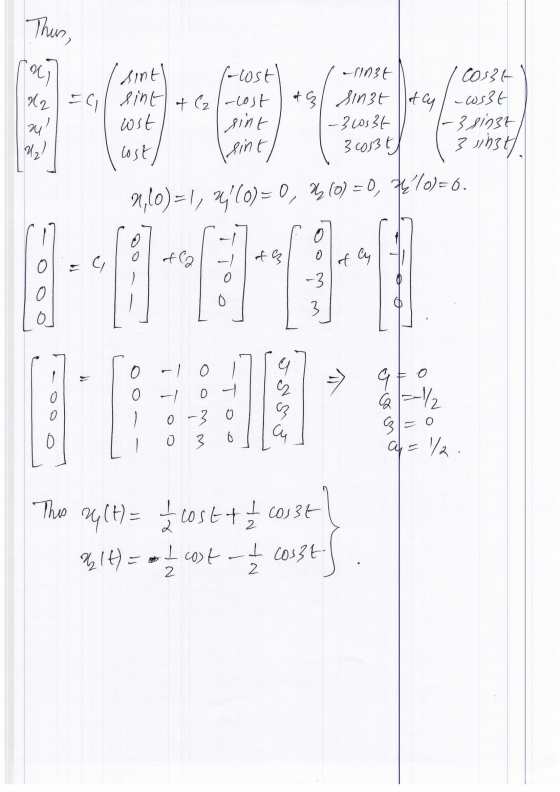 Thus,
[x1 x2 x1' x2'] = c1 (sint sint cost cost) + c2 (-cost -cost sint sint) + c3 (-sin3t sin3t -3cos3t 3cos3t) + c4 (cos3t -cos3t -3sin3t 3sin3t).
x1(0)=1, x1'(0)=0, x2(0)=0, x2'(0)=0.
[1 0 0 0] = c1 [0 0 1 1] + c2 [-1 -1 0 0] + c3 [0 0 -3 3] + c4 [1 -1 0 0].
[1 0 0 0] = [0 -1 0 1
0 -1 0 -1
1 0 -3 0
1 0 3 0] [c1 c2 c3 c4] ⇒ c1 = 0
c2 = -1/2
c3 = 0
c4 = 1/2.
Thus x1(t) = 1/2 cost + 1/2 cos3t
x2(t) = 1/2 cost - 1/2 cos3t } .